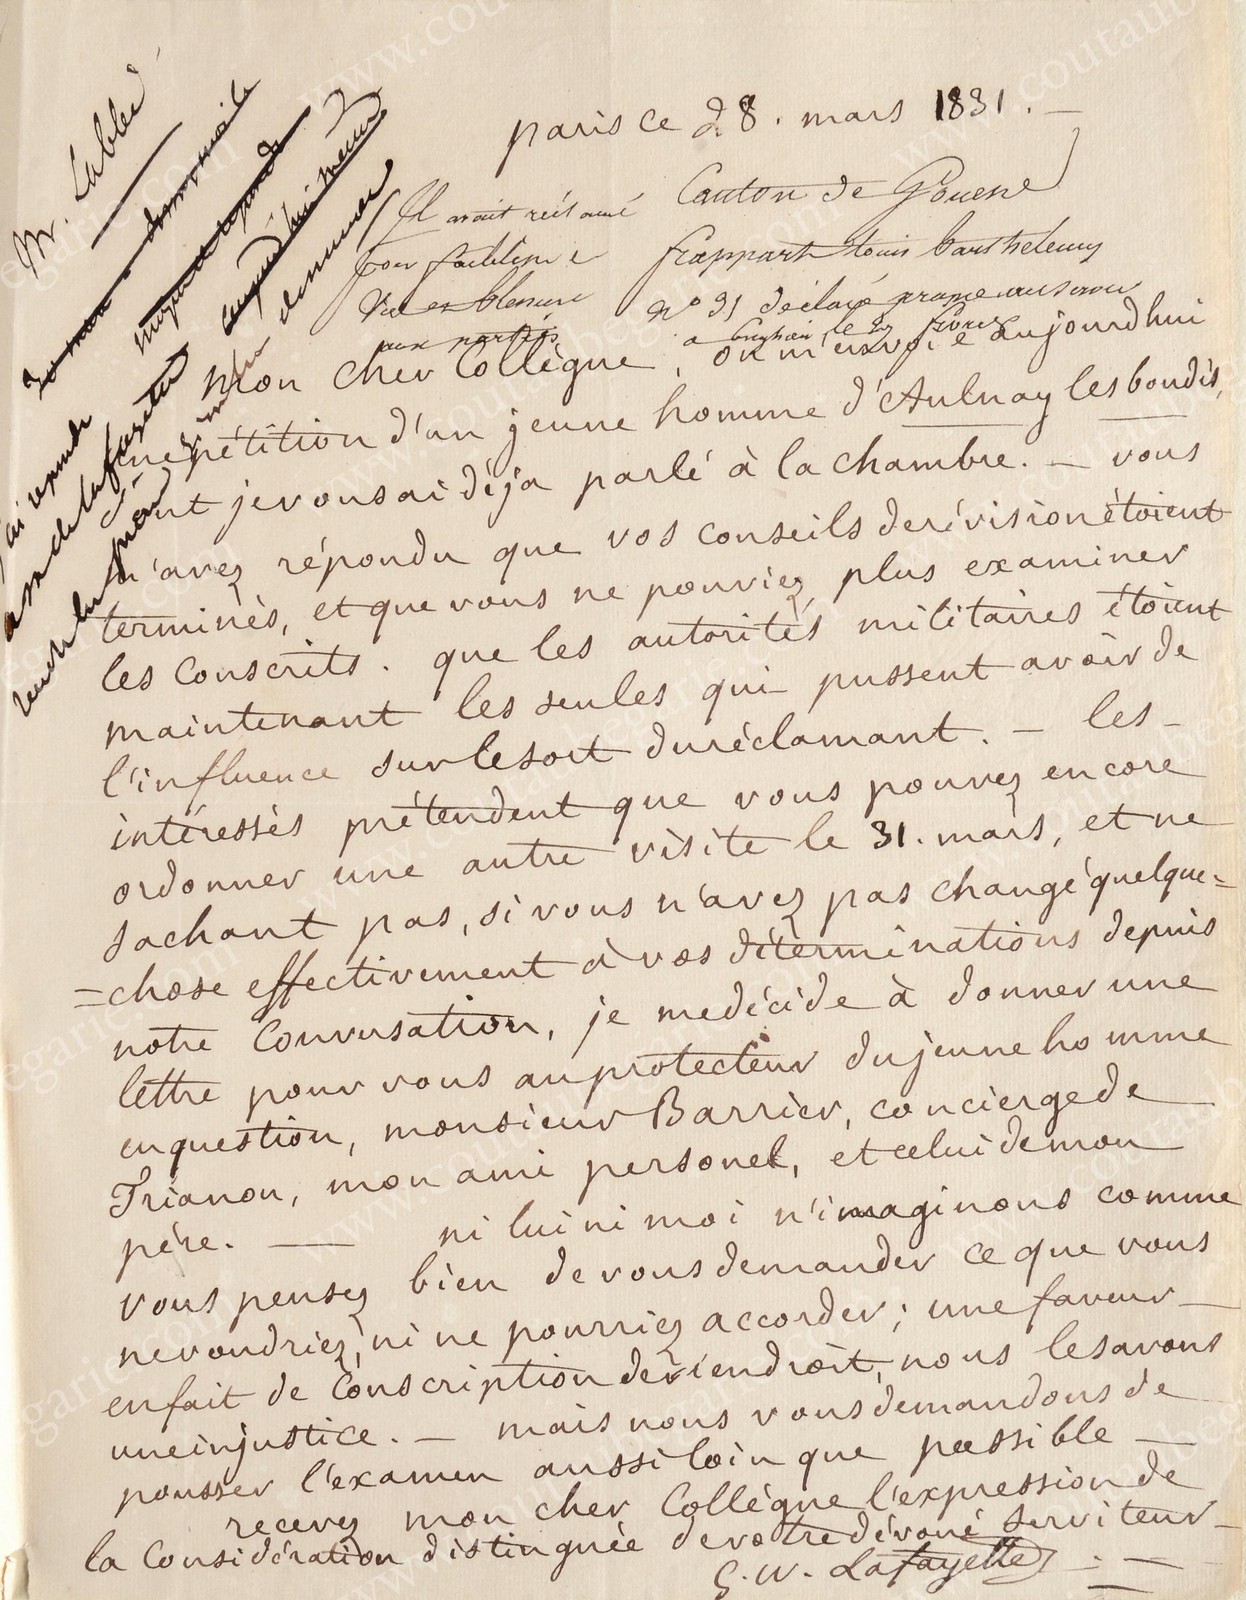 paris ce 28. mars 1831. —
Mr. Lablei
Il avait réclamé
pour faiblesse
vue et blessure
aux parties
Canton de Gonesse
frappart Louis barthelemy
n° 31 déclaré propre au service
a le 23 février
mon cher Collègue, on m'envoie aujourdhui
une pétition d'un jeune homme d'Aulnay les bondis,
dont je vous ai déja parlé à la chambre. — vous
m'avez répondu que vos conseils de révision étoient
terminés, et que vous ne pouviez plus examiner
les conscrits. que les autorités militaires étoient
maintenant les seules qui pussent avoir de
l'influence sur le sort du réclamant. — les
intéressés prétendent que vous pouvez encore
ordonner une autre visite le 31. mars, et ne
sachant pas, si vous n'avez pas changé quelque=
=chose effectivement à vos déterminations depuis
notre Conversation, je me décide à donner une
lettre pour vous au protecteur du jeune homme
en question, monsieur Barrier, concierge de
Trianon, mon ami personel, et celui de mon
père. — ni lui ni moi n'imaginons comme
vous pensez bien de vous demander ce que vous
ne voudriez, ni ne pourriez accorder; une faveur
en fait de Conscription deviendroit, nous le savons
une injustice. — mais nous vous demandons de
pousser l'examen aussi loin que possible —
recevez mon cher Collègue l'expression de
la Considération distinguée de votre dévoué serviteur —
G. W. Lafayette